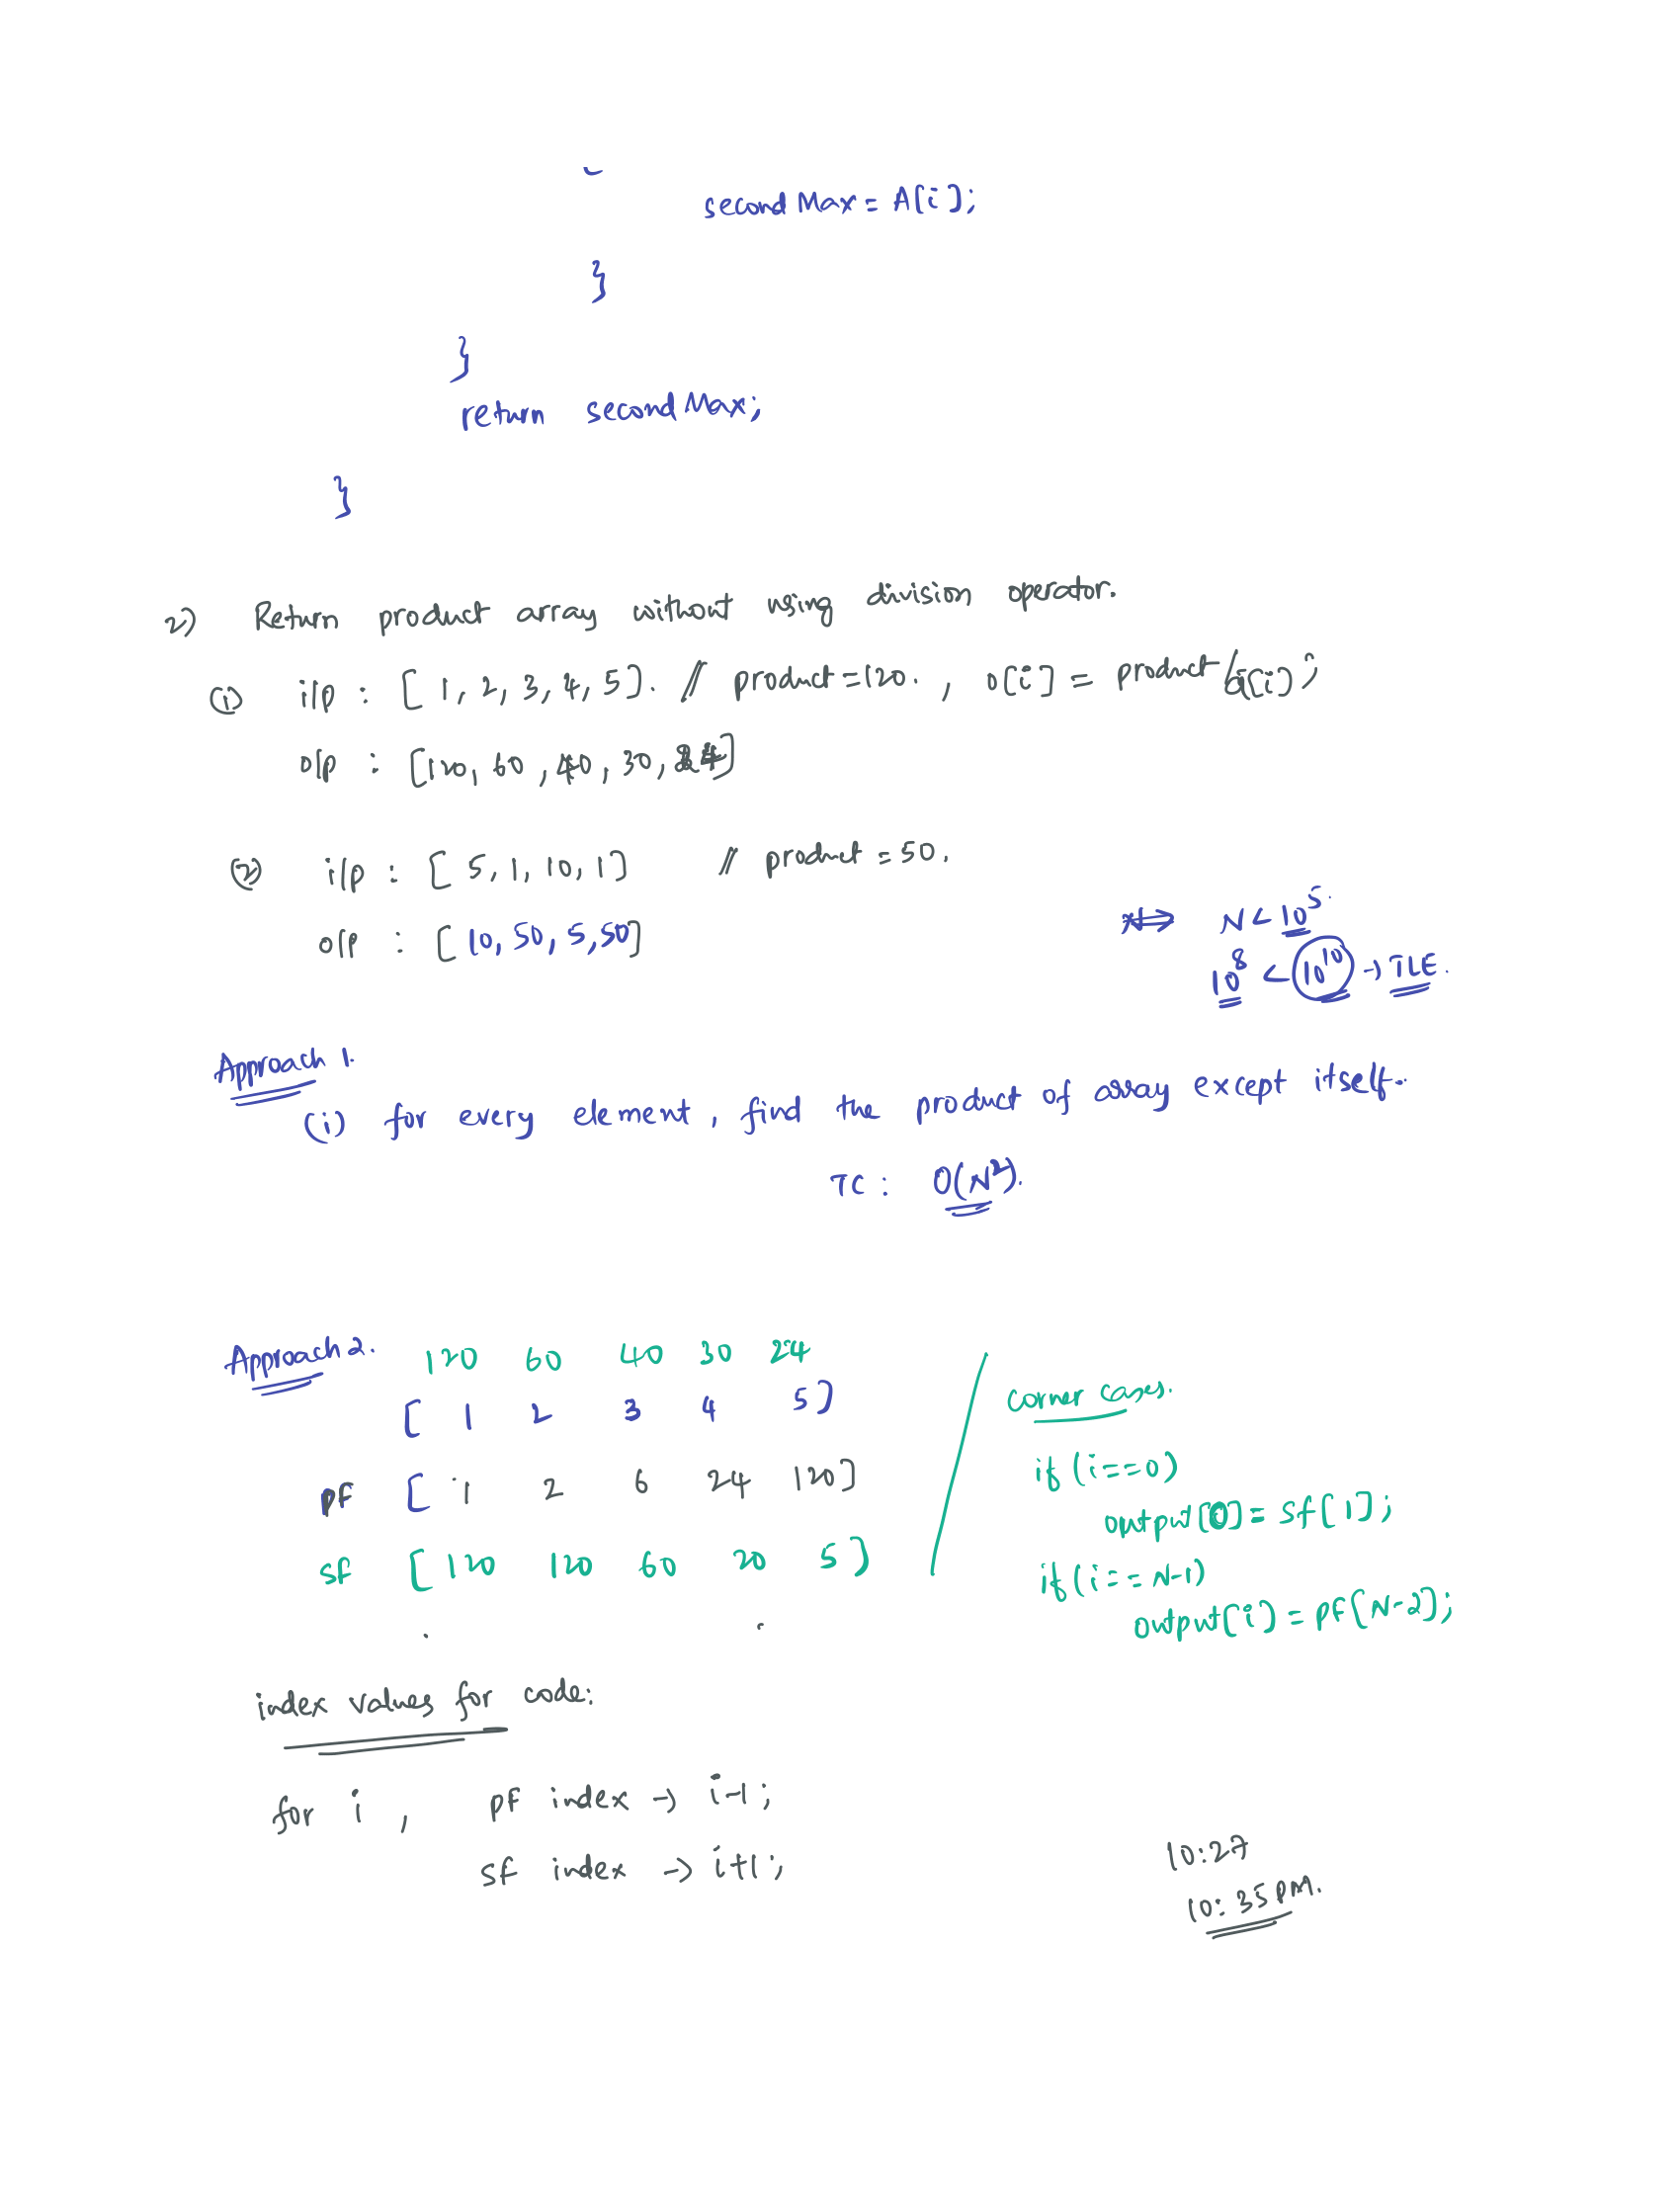 secondMax = A[i];
}
}
return secondMax;
}
2) Return product array without using division operator.
(1) i/p : [ 1, 2, 3, 4, 5]. // product = 120. , o[i] = product/a[i];
o/p : [120, 60, 40, 30, 24]
(2) i/p : [ 5, 1, 10, 1] // product = 50.
o/p : [10, 50, 5, 50]
N < 10^5.
10^8 < 10^10 → TLE.
Approach 1.
(i) for every element, find the product of array except itself.
TC : O(N^2).
Approach 2. 120 60 40 30 24
[ 1 2 3 4 5 ]
pf [ 1 2 6 24 120 ]
sf [ 120 120 60 20 5 ]
corner cases.
if (i==0)
output[0] = sf[1];
if (i == N-1)
output[i] = pf[N-2];
index values for code:
for i , pf index → i-1;
sf index → i+1;
10:27
10:35 PM.